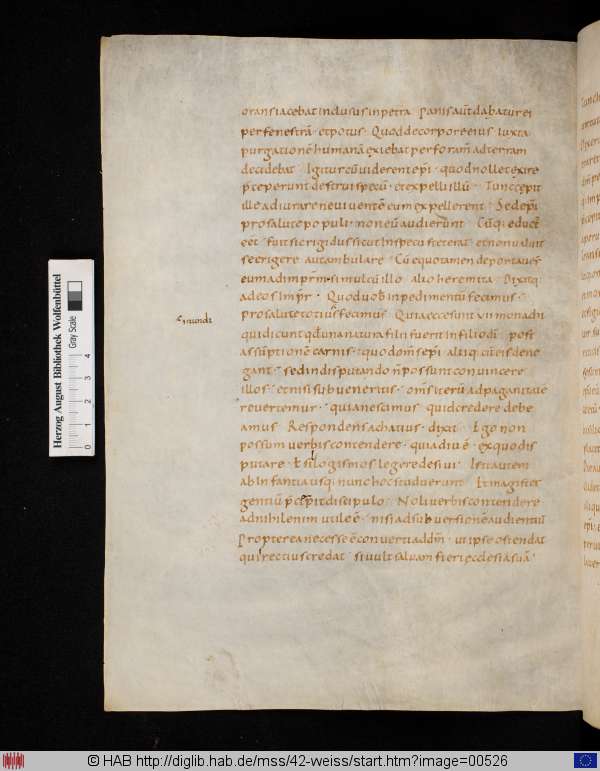 oransiacebat inclusus inpetra Panis aut̄ dabatur ei
per fenestrā et potus · Quod decorpore eius iuxta
purgationē humanā exiebat per foram̄ adterram
decidebat Igitur cū viderent ep̄i · quod nollet exire
p̄ceperunt destrui specū · et expelli illū Tunc cępit
ille adiurare ne viventē eum expellerent Sed ep̄i
pro salute populi · non eū audierunt Cūq; educt
eēt fuit sic rigidus sicut in specu steterat et non valuit
se erigere aut ambulare Cū equo tamen deportavert
eum ad impr̄m · simul cū illo alio heremita Dixitq;
ad eos impr̄ · Quod vob inpedimentū fecimus
pro salute totius fecimus Quia eccesunt vii monachi
qui dicunt qd una natura filii fuerit in filio dī post
assūptionē carnis · quod om̄s ep̄i aliiq;
gant · sed indisputando n̄ possunt convincere
illos · et nisi subveneritis · om̄s iterū ad paganitatē
revertemur · quia nescimus quid credere debe
amus Respondens achatius dixit Ego non
possum verbis contendere · quia diu ē ex quo dis
putare et silogismos legere desivi Isti autem
ab infantia usq; nunc hoc studuerunt Et magister
gentiū p̄cępit discipulo Noli verbis contendere
ad nihil enim utile ē · nisi ad subversionē audientiū
Propterea necesse ē converti ad dm̄ · ut ipse ostendat
qui rectius credat si vult salvam fieri ęcclesiā suā
Herzog August Bibliothek Wolfenbüttel
Gray Scale
0 1 2 3 4
© HAB http://diglib.hab.de/mss/42-weiss/start.htm?image=00526